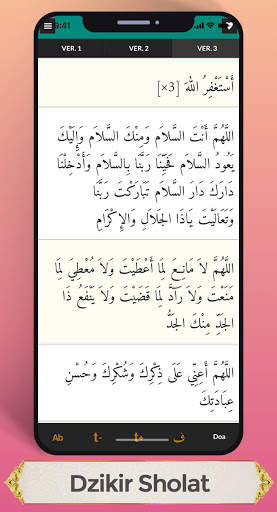 9:41
VER. 1 VER. 2 VER. 3
أَسْتَغْفِرُ اللهَ [3×]
اللَّهُمَّ أَنْتَ السَّلاَمُ وَمِنْكَ السَّلاَمُ وَإِلَيْكَ
يَعُودُ السَّلاَمُ فَحَيِّنَا رَبَّنَا بِالسَّلاَمِ وَأَدْخِلْنَا
دَارَكَ دَارَ السَّلاَمِ تَبَارَكْتَ رَبَّنَا
وَتَعَالَيْتَ يَاذَا الْجَلاَلِ وَالإِكْرَامِ
اللَّهُمَّ لاَ مَانِعَ لِمَا أَعْطَيْتَ وَلاَ مُعْطِيَ لِمَا
مَنَعْتَ وَلاَ رَادَّ لِمَا قَضَيْتَ وَلاَ يَنْفَعُ ذَا
الْجَدِّ مِنْكَ الْجَدُّ
اللَّهُمَّ أَعِنِّي عَلَى ذِكْرِكَ وَشُكْرِكَ وَحُسْنِ
عِبَادَتِكَ
Ab t- t+ ف Doa
Dzikir Sholat